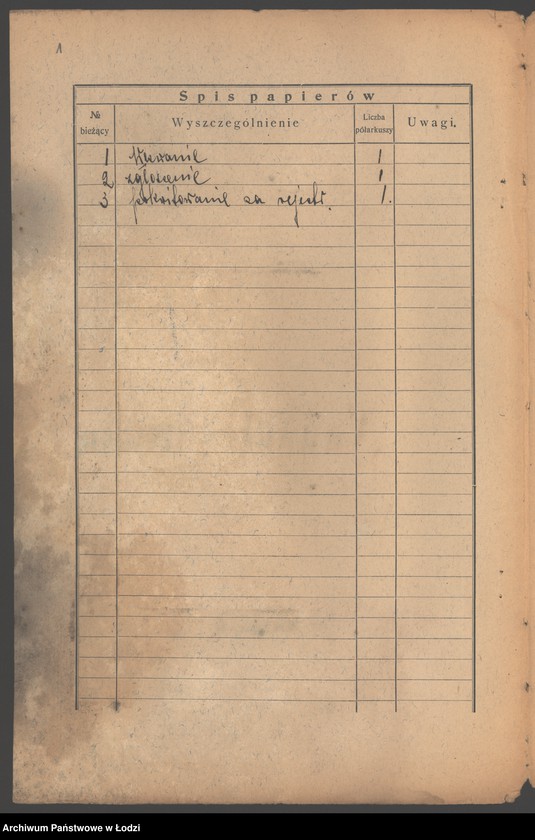 1
Spis papierów
№ bieżący
Wyszczególnienie
Liczba półarkuszy
Uwagi.
1 Wezwanie 1
2 zgłoszenie 1
3 pokwitowanie za rejestr. 1.
Archiwum Państwowe w Łodzi